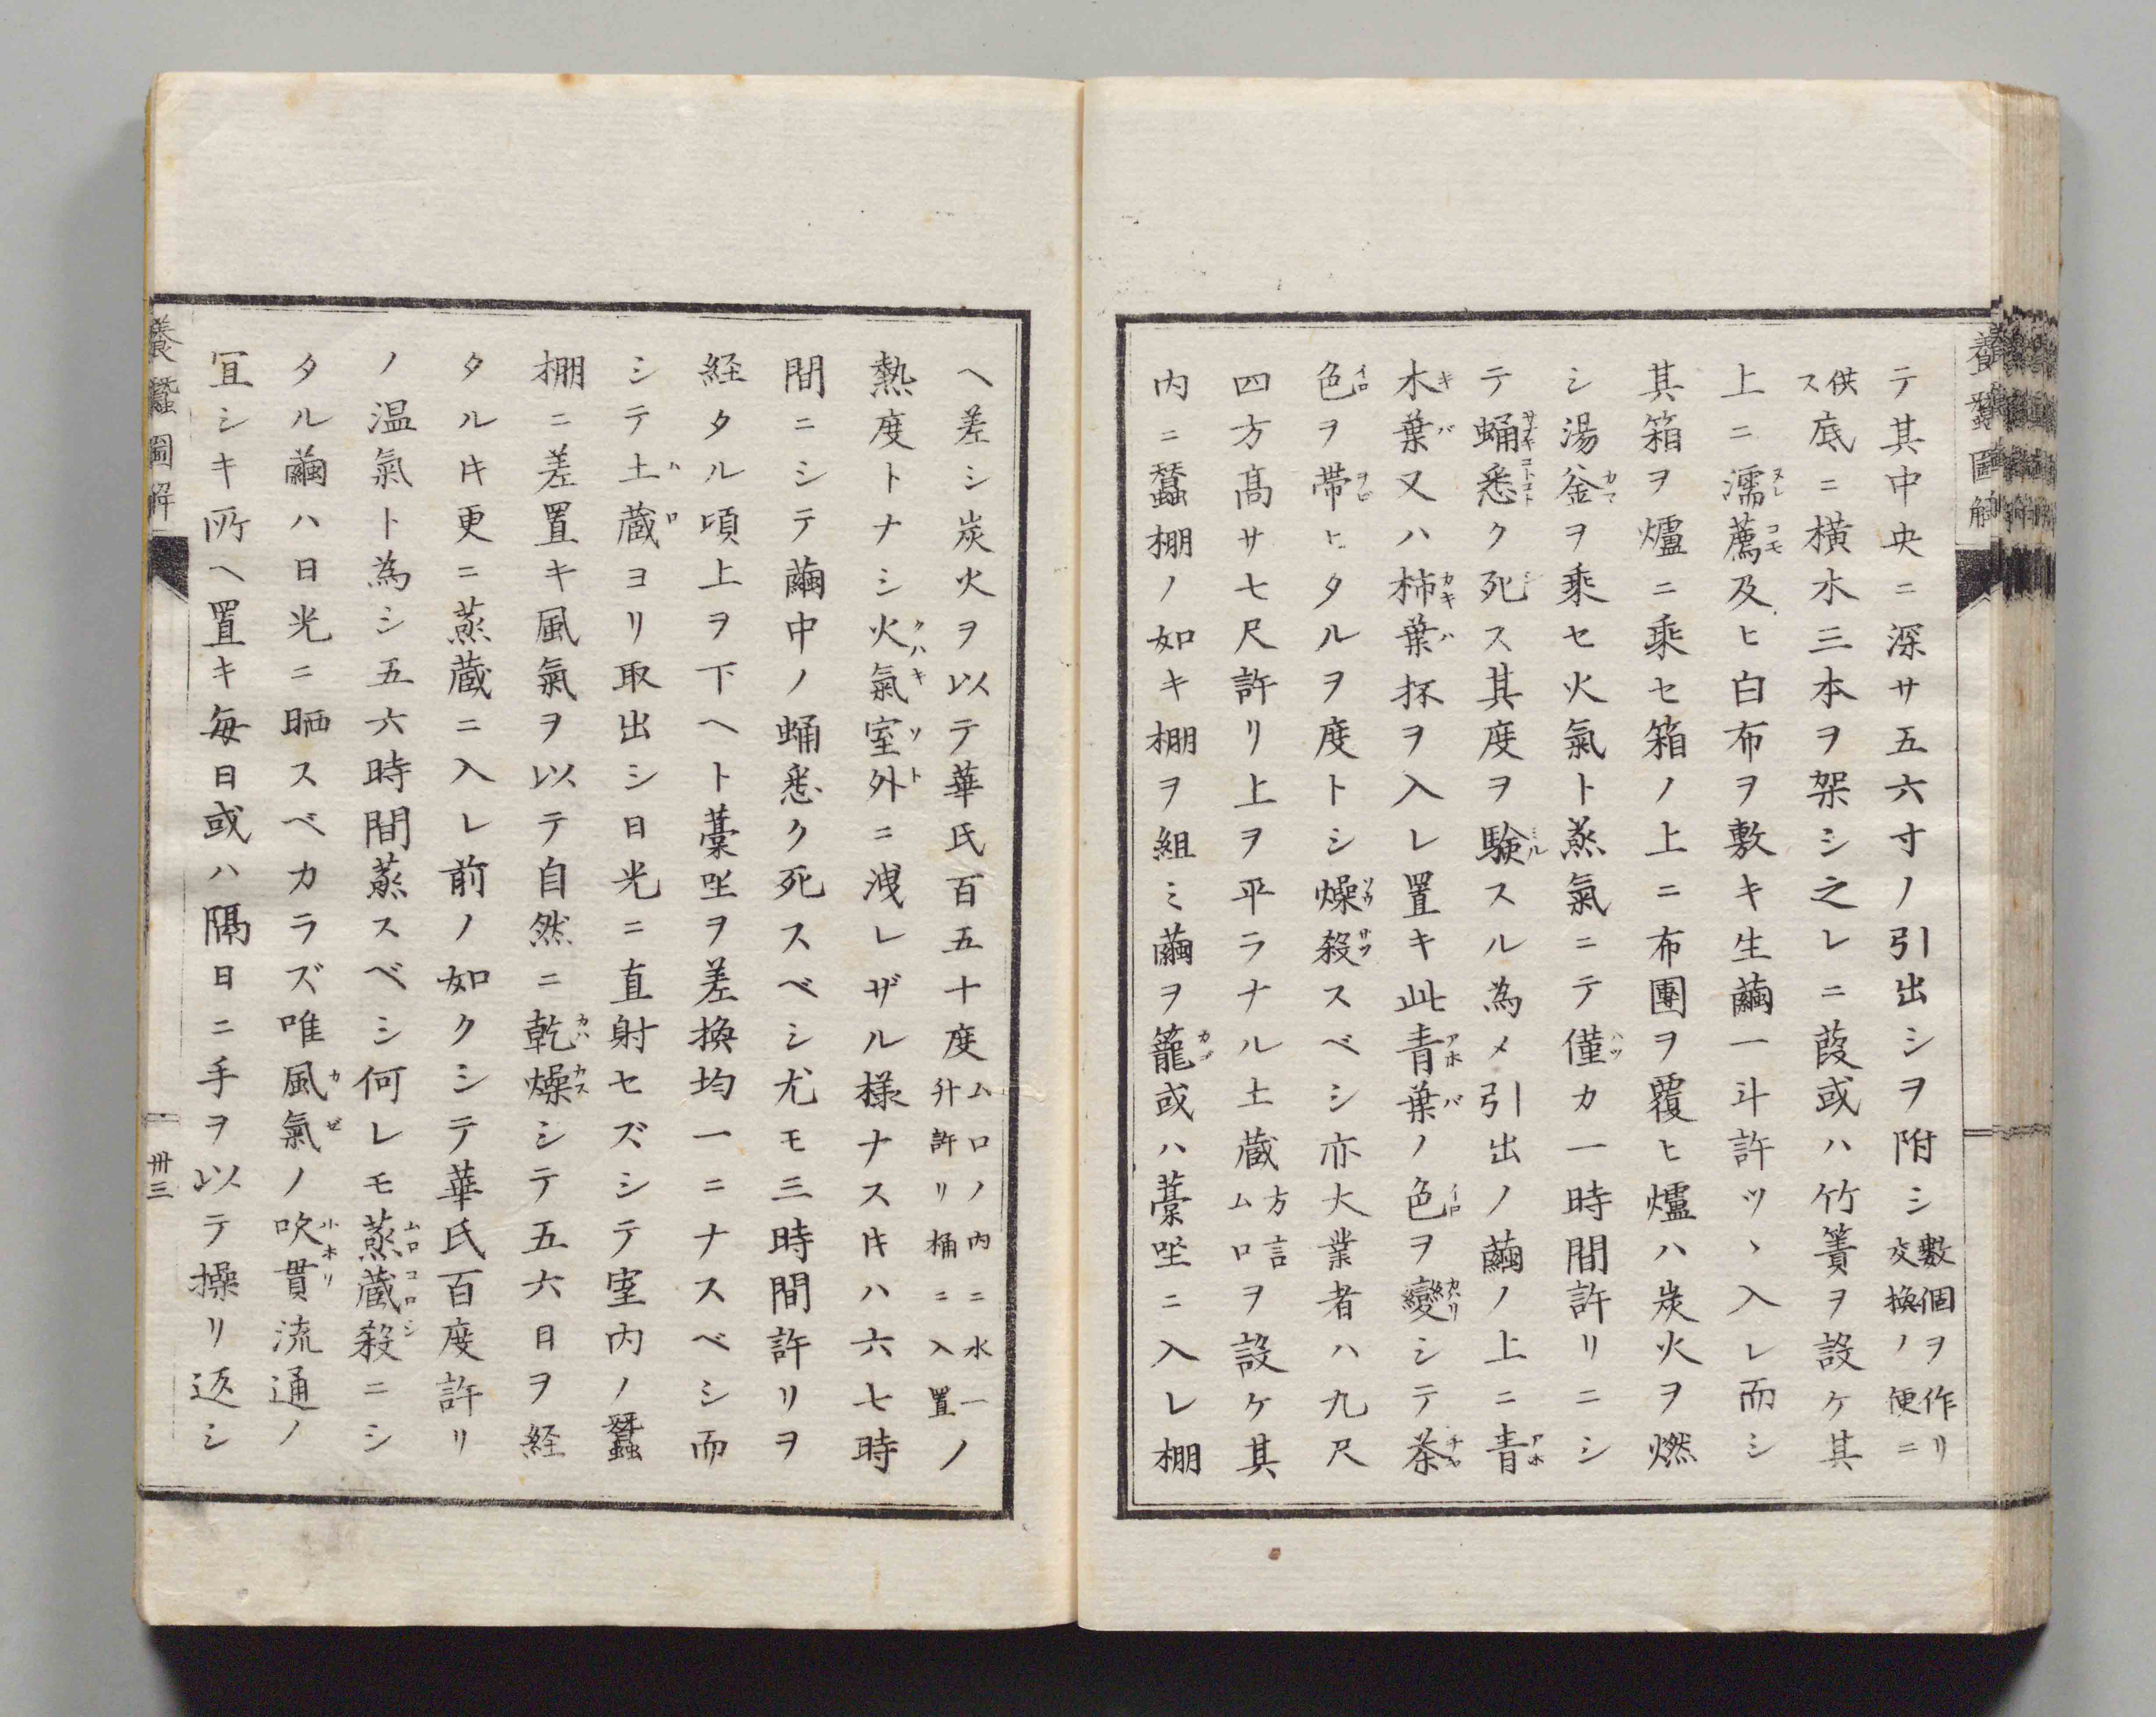 養蠶圖解
テ其中央ニ深サ五六寸ノ引出シヲ附シ數個ヲ作リ交換ノ便ニ
供ス底ニ横木三本ヲ架シ之レニ葭或ハ竹簀ヲ設ケ其
上ニ濡薦及ヒ白布ヲ敷キ生繭一斗許ツヽ入レ而シ
其箱ヲ爐ニ乘セ箱ノ上ニ布團ヲ覆ヒ爐ハ炭火ヲ燃
シ湯釡ヲ乘セ火氣ト蒸氣ニテ僅カ一時間許リニシ
テ蛹悉ク死ス其度ヲ験スル為メ引出ノ繭ノ上ニ青
木葉又ハ柿葉抔ヲ入レ置キ此青葉ノ色ヲ變シテ茶
色ヲ帶ヒタルヲ度トシ燥殺スベシ亦大業者ハ九尺
四方髙サ七尺許リ上ヲ平ラナル土蔵方言ムロヲ設ケ其
内ニ蠶棚ノ如キ棚ヲ組ミ繭ヲ籠或ハ藁㘴ニ入レ棚
ヘ差シ炭火ヲ以テ華氏百五十度ムロノ内ニ水一升許リ桶ニ入置ノ
熱度トナシ火氣室外ニ洩レザル様ナスキハ六七時
間ニシテ繭中ノ蛹悉ク死スベシ尤モ三時間許リヲ
経タル頃上ヲ下ヘト藁㘴ヲ差換均一ニナスベシ而
シテ土蔵ヨリ取出シ日光ニ直射セズシテ室内ノ蠶
棚ニ差置キ風氣ヲ以テ自然ニ乾燥シテ五六日ヲ経
タルキ更ニ蒸蔵ニ入レ前ノ如クシテ華氏百度許リ
ノ温氣ト為シ五六時間蒸スベシ何レモ蒸蔵殺ニシ
タル繭ハ日光ニ晒スベカラズ唯風氣ノ吹貫流通ノ
冝シキ所ヘ置キ毎日或ハ隔日ニ手ヲ以テ操リ返シ
養蠶圖解
卅三